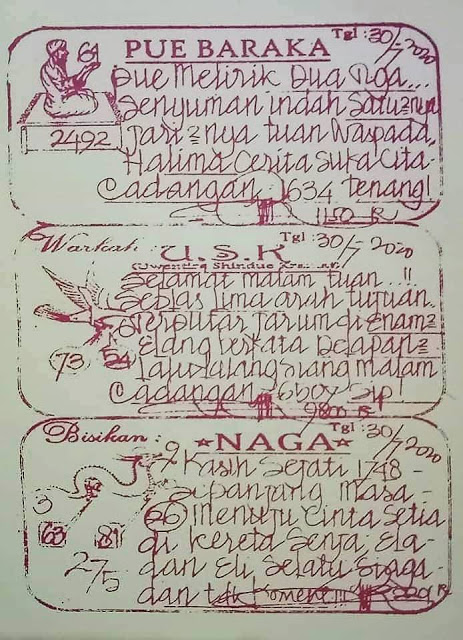 PUE BARAKA Tgl: 30/7-2020
64
Pue Melirik Dua Nga...
Senyuman indah Satu2nya
2492 Jari2nya tuan Waspada,
Halima Cerita Suka Cita.
Cadangan 1634 Tenang!
Warkah: U.S.K Tgl: 30/7-2020
Selamat malam tuan..!!
Seblas lima arah tujuan.
Terputar Jarum di Enam2
73 54 Elang berkata Delapan2
lalulalang siang malam
Cadangan 6507 Sip!
Bisikan: NAGA Tgl: 30/7 2020
2 Kasih Sejati 1748 -
Sepanjang Masa -
3 Menuju Cinta Setia
63 81 di Kereta Senja, Ela-
275 dan Eli Selalu
dan tdk Koment!!!